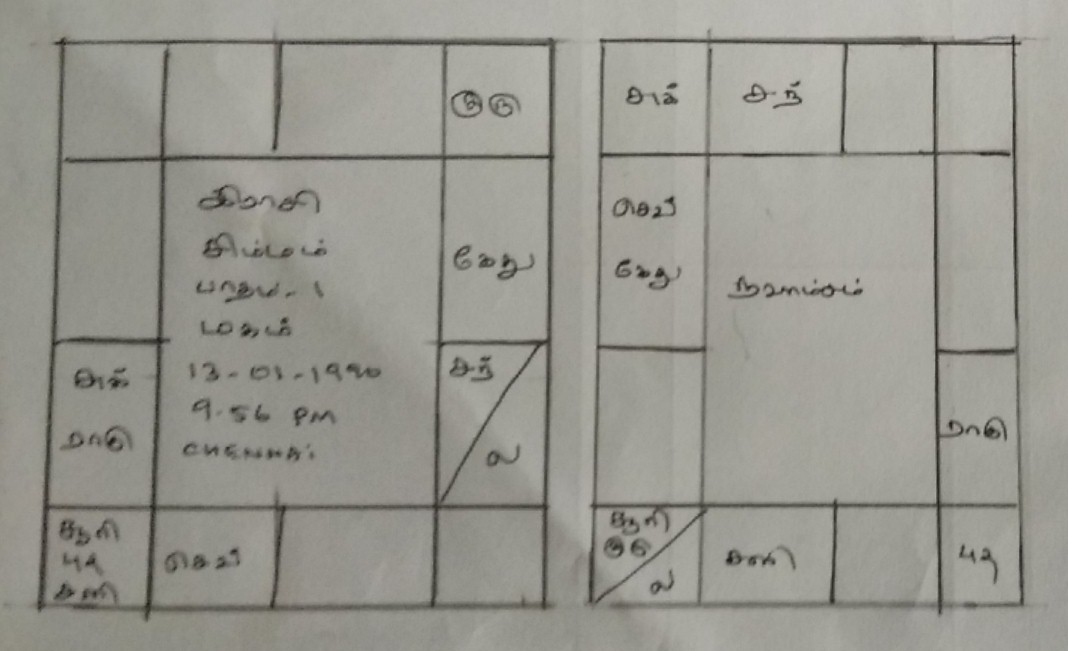 குரு
இராசி
சிம்மம்
பாதம் - 1
மகம்
13-01-1990
9.56 PM
CHENNAI
கேது
சுக்
ராகு
சந்
ல
சூரி
புத
சனி
செவ்
சுக்
சந்
செவ்
கேது
நவாம்சம்
ராகு
சூரி
குரு
ல
சனி
புத